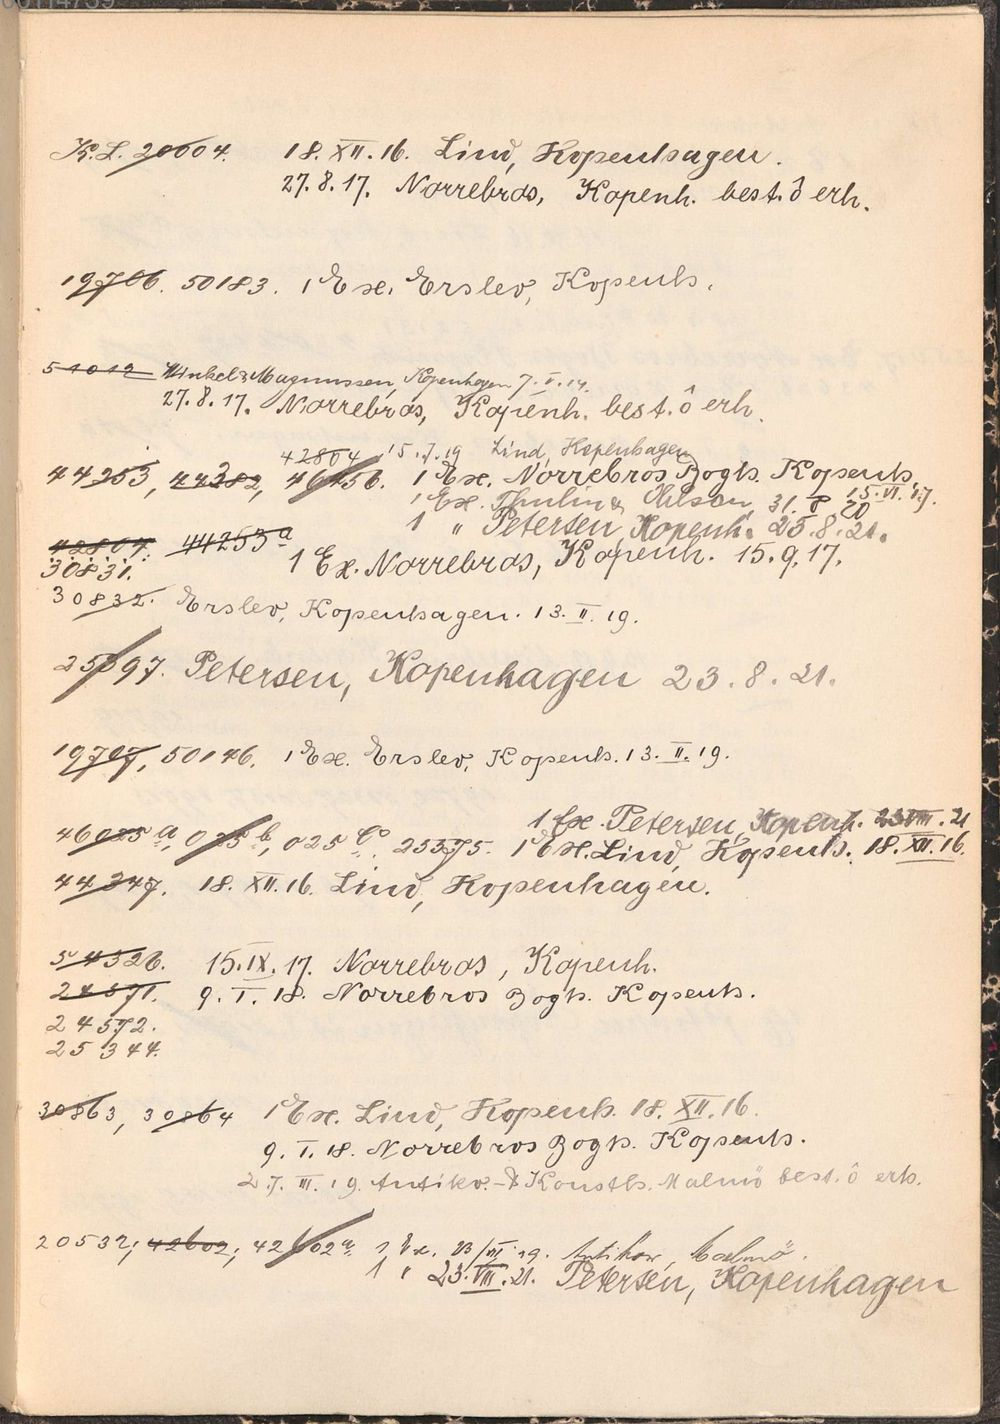 K.L. 20604. 18. XII. 16. Lind, Kopenhagen.
27. 8. 17. Norrebros, Kopenh. best. ô erh.
19706. 50183. 1 Ex. Erslev, Kopenh.
51012 Winkel & Magnussen, Kopenhagen 7. V. 14.
27. 8. 17. Norrebros, Kopenh. best. ô erh.
42804 15. 7. 19 Lind, Kopenhagen
44253, 44382, 46456. 1 Ex. Norrebros Bogh. Kopenh.
15. VI. 17.
1 Ex. Thulin & Ohlson, 31. 8 20
1 " Petersen, Kopenh. 23. 8. 21.
42804. 44253a
30831. 1 Ex. Norrebros, Kopenh. 15. 9. 17.
30832. Erslev, Kopenhagen. 13. II. 19.
25397. Petersen, Kopenhagen 23. 8. 21.
19707, 50146. 1 Ex. Erslev, Kopenh. 13. II. 19.
1 Ex. Petersen, Kopenh. 23 VIII. 21
46025 a, 025 b, 025 c. 25375. 1 Ex. Lind, Kopenh. 18. XII. 16.
44247. 18. XII. 16. Lind, Kopenhagen.
54326. 15. IX. 17. Norrebros, Kopenh.
24571. 9. I. 18. Norrebros Bogh. Kopenh.
24572.
25344.
30863, 30864 1 Ex. Lind, Kopenh. 18. XII. 16.
9. I. 18. Norrebros Bogh. Kopenh.
27. III. 19. Antikv.- & Konsth. Malmö best. ô erh.
20532; 42602; 42602a. 1 Ex. 23/VII 19. Antikvar, Malmö.
1 " 23. VIII. 21. Petersen, Kopenhagen